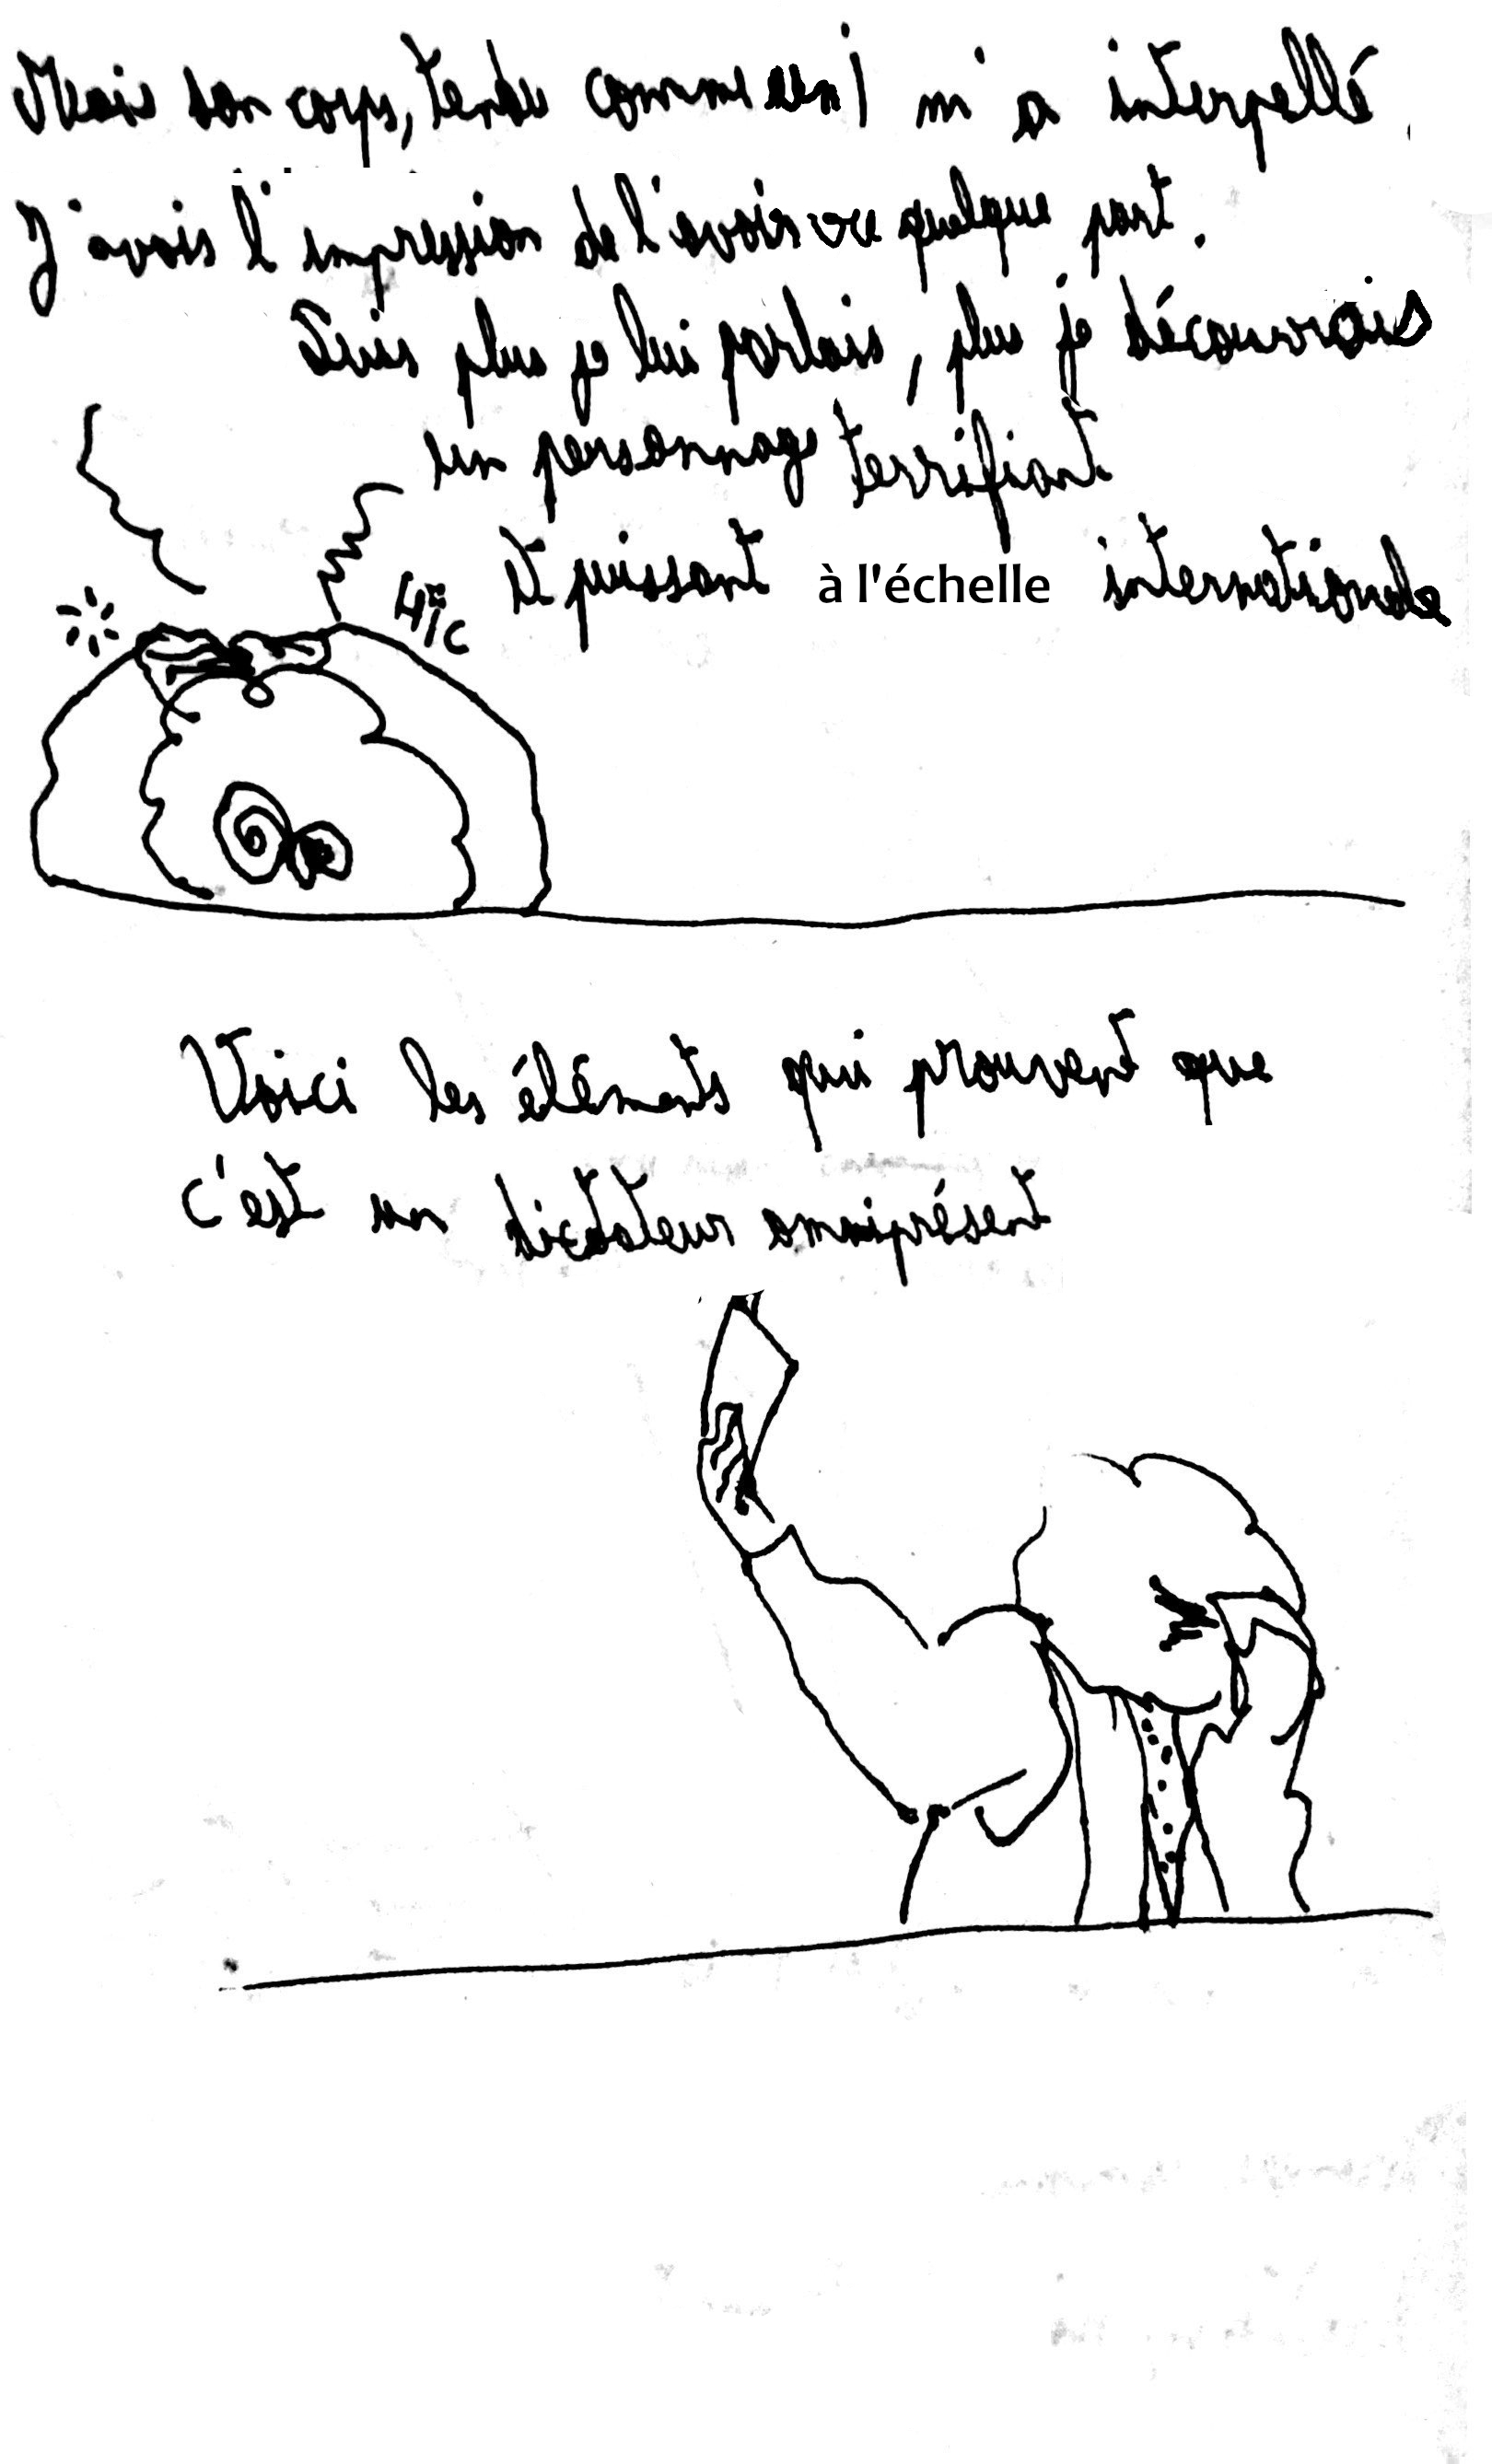 Mais son corps, tendu comme un I m'a interpellé.
J'avais l'impression de l'avoir vu quelque part.
Puis plus je lui parlais, plus je découvrais
un personnage terrifiant
et puissant à l'échelle internationale
Voici les éléments qui prouvent que
c'est un dictateur omniprésent